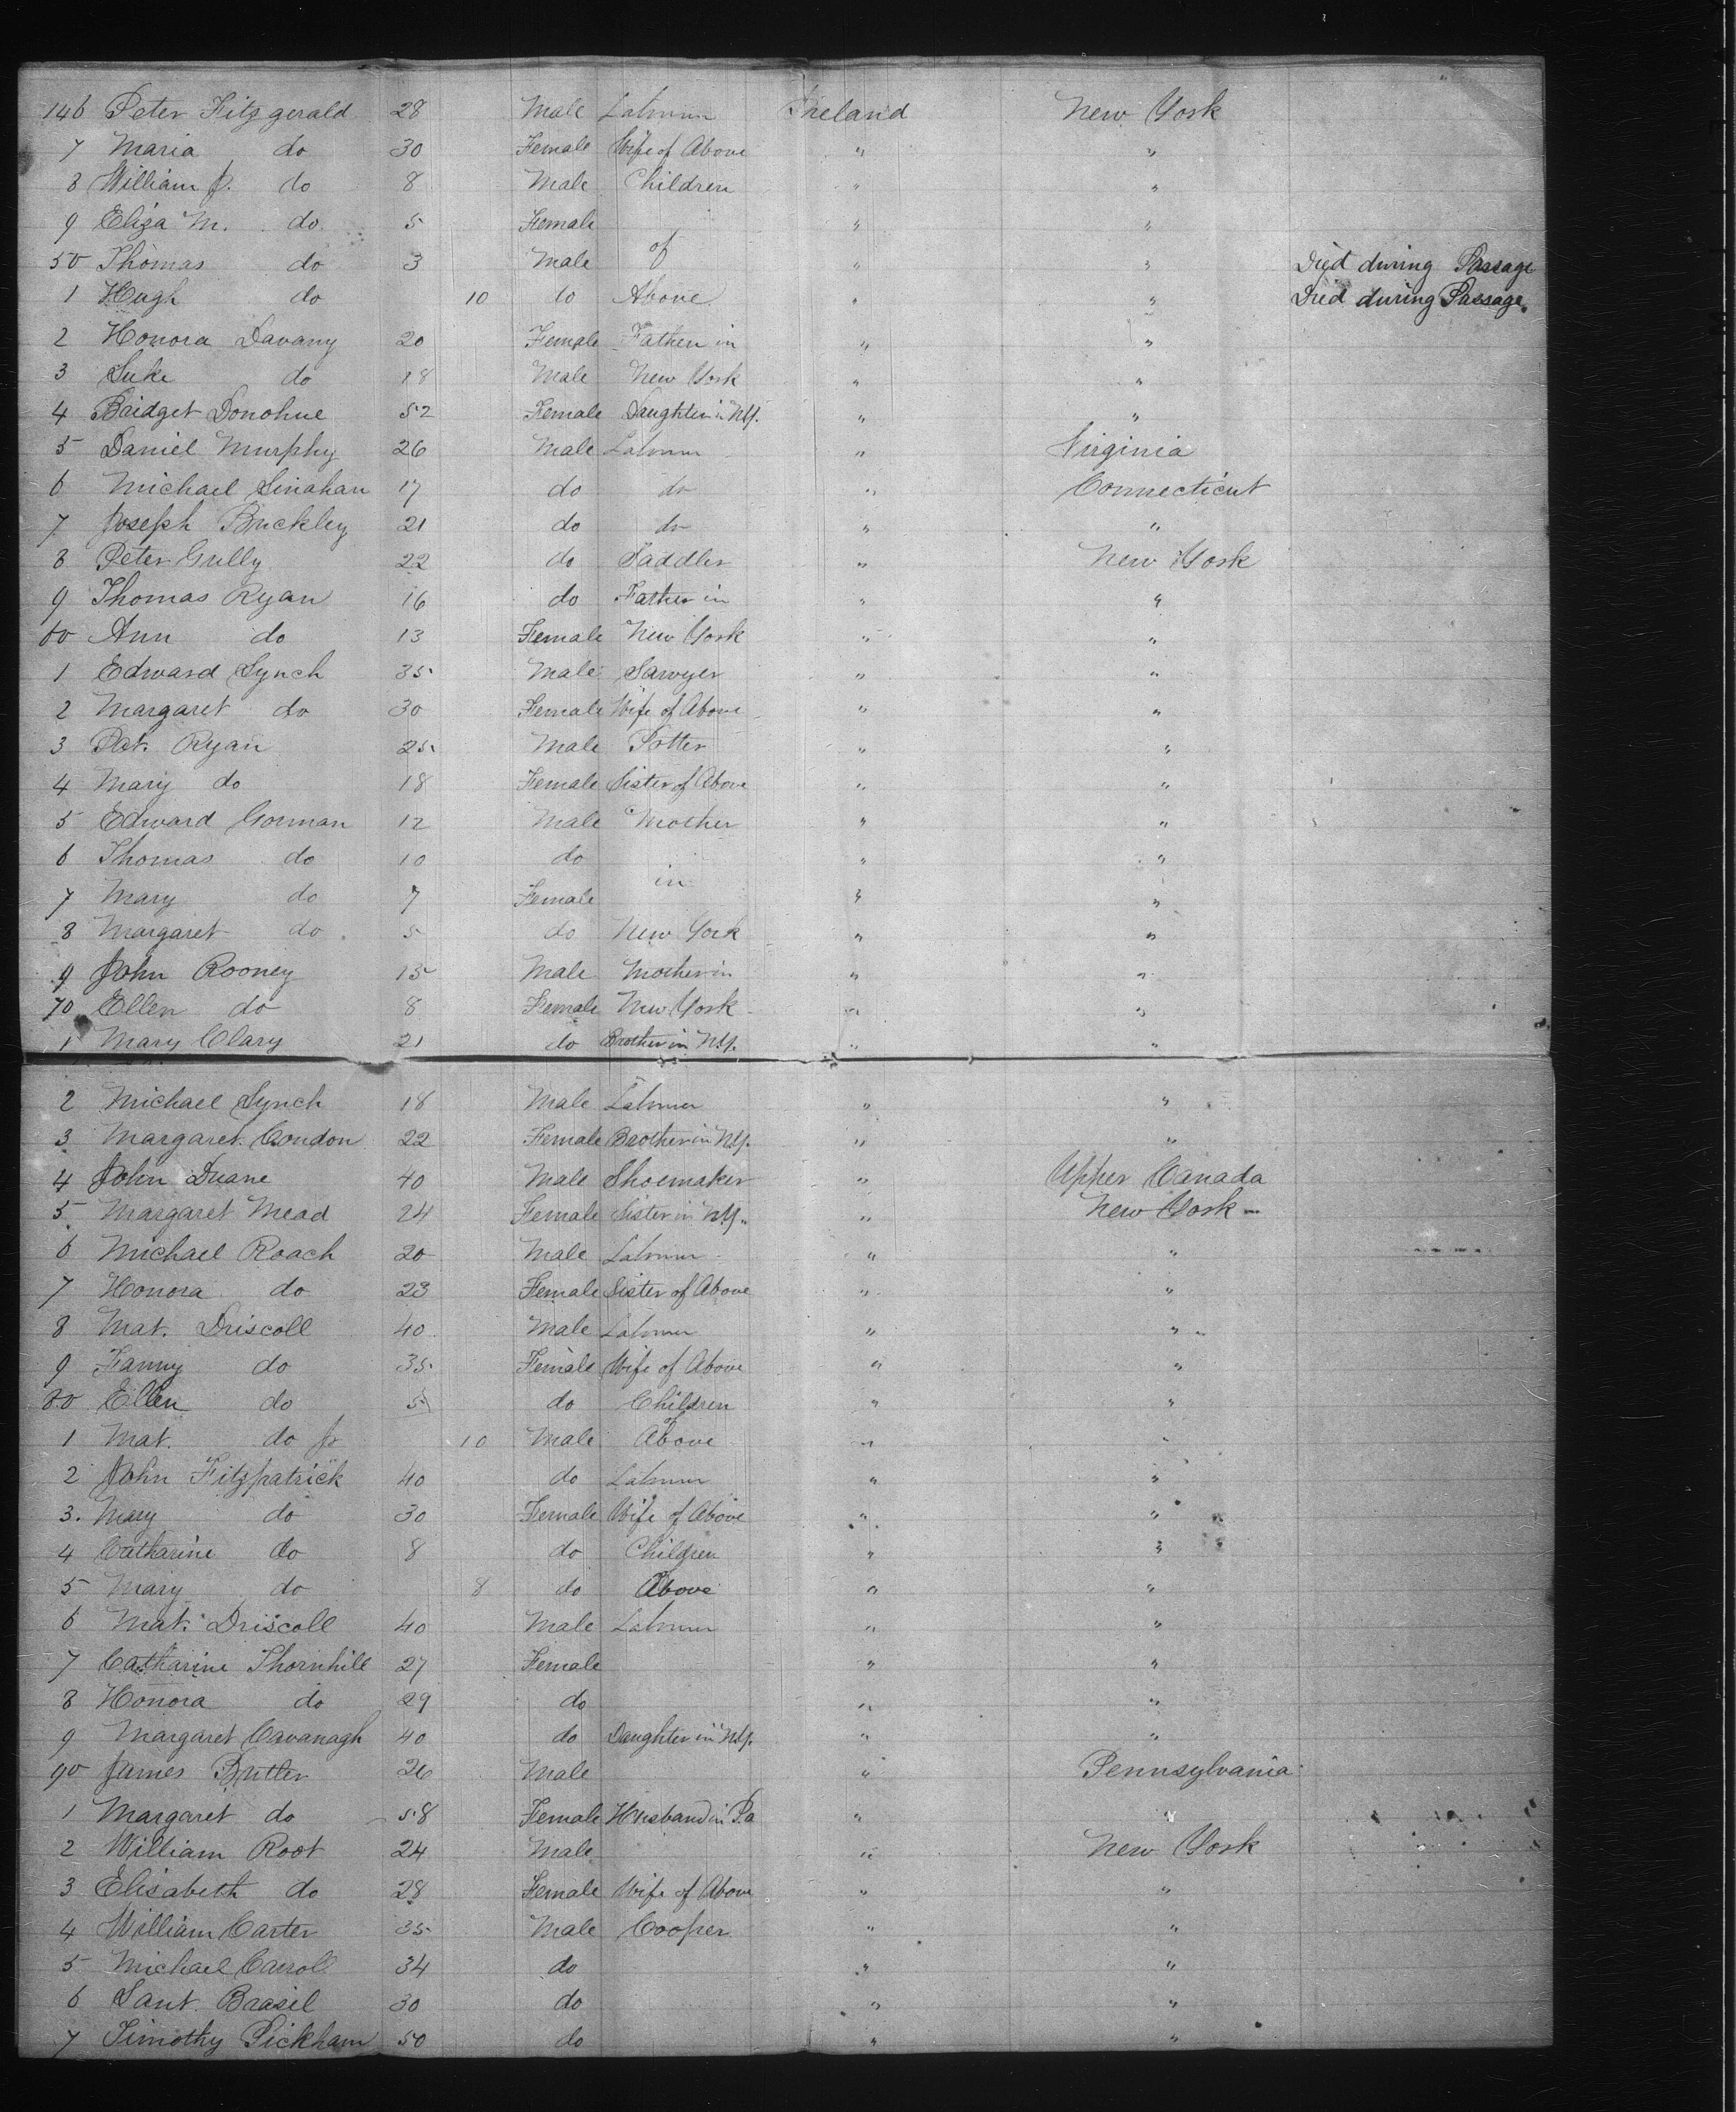 146 Peter Fitzgerald 28 Male Labourer Ireland New York
7 Maria do 30 Female Wife of Above " "
8 William J. do 8 Male Children " "
9 Eliza M. do 5 Female " "
50 Thomas do 3 Male of " " Died during Passage
1 Hugh do 10 do Above " " Died during Passage.
2 Honora Davany 20 Female Father in " "
3 Luke do 18 Male New York " "
4 Bridget Donohue 52 Female Daughter in N.Y. " "
5 Daniel Murphy 26 Male Labourer " Virginia
6 Michael Linahan 17 do do " Connecticut
7 Joseph Buckley 21 do do " "
8 Peter Gully 22 do Saddler " New York
9 Thomas Ryan 16 do Father in " "
60 Ann do 13 Female New York " "
1 Edward Lynch 35 Male Sawyer " "
2 Margaret do 30 Female Wife of Above " "
3 Pat. Ryan 25 Male Potter " "
4 Mary do 18 Female Sister of Above " "
5 Edward Gorman 12 Male Mother " "
6 Thomas do 10 do " "
7 Mary do 7 Female in " "
8 Margaret do 5 do New York " "
9 John Rooney 15 Male Mother in " "
70 Ellen do 8 Female New York " "
1 Mary Clary 21 do Brother in N.Y. " "
2 Michael Lynch 18 Male Labourer " "
3 Margaret Condon 22 Female Brother in N.Y. " "
4 John Duane 40 Male Shoemaker " Upper Canada
5 Margaret Mead 24 Female Sister in N.Y. " New York
6 Michael Roach 20 Male Labourer " "
7 Honora do 23 Female Sister of Above " "
8 Mat. Driscoll 40 Male Labourer " "
9 Fanny do 35 Female Wife of Above " "
80 Ellen do 5 do Children " "
1 Mat. do Jr 10 Male of Above " "
2 John Fitzpatrick 40 do Labourer " "
3. Mary do 30 Female Wife of Above " "
4 Catharine do 8 do Children " "
5 Mary do 8 do Above " "
6 Mat. Driscoll 40 Male Labourer " "
7 Catharine Thornhill 27 Female " "
8 Honora do 29 do " "
9 Margaret Cavanagh 40 do Daughter in N.Y. " "
90 James Butler 26 Male " Pennsylvania
1 Margaret do 58 Female Husband in Pa " "
2 William Root 24 Male " New York
3 Elisabeth do 28 Female Wife of Above " "
4 William Carter 35 Male Cooper " "
5 Michael Carroll 34 do " "
6 Brasil 30 do " "
7 Timothy Pickham 50 do " "